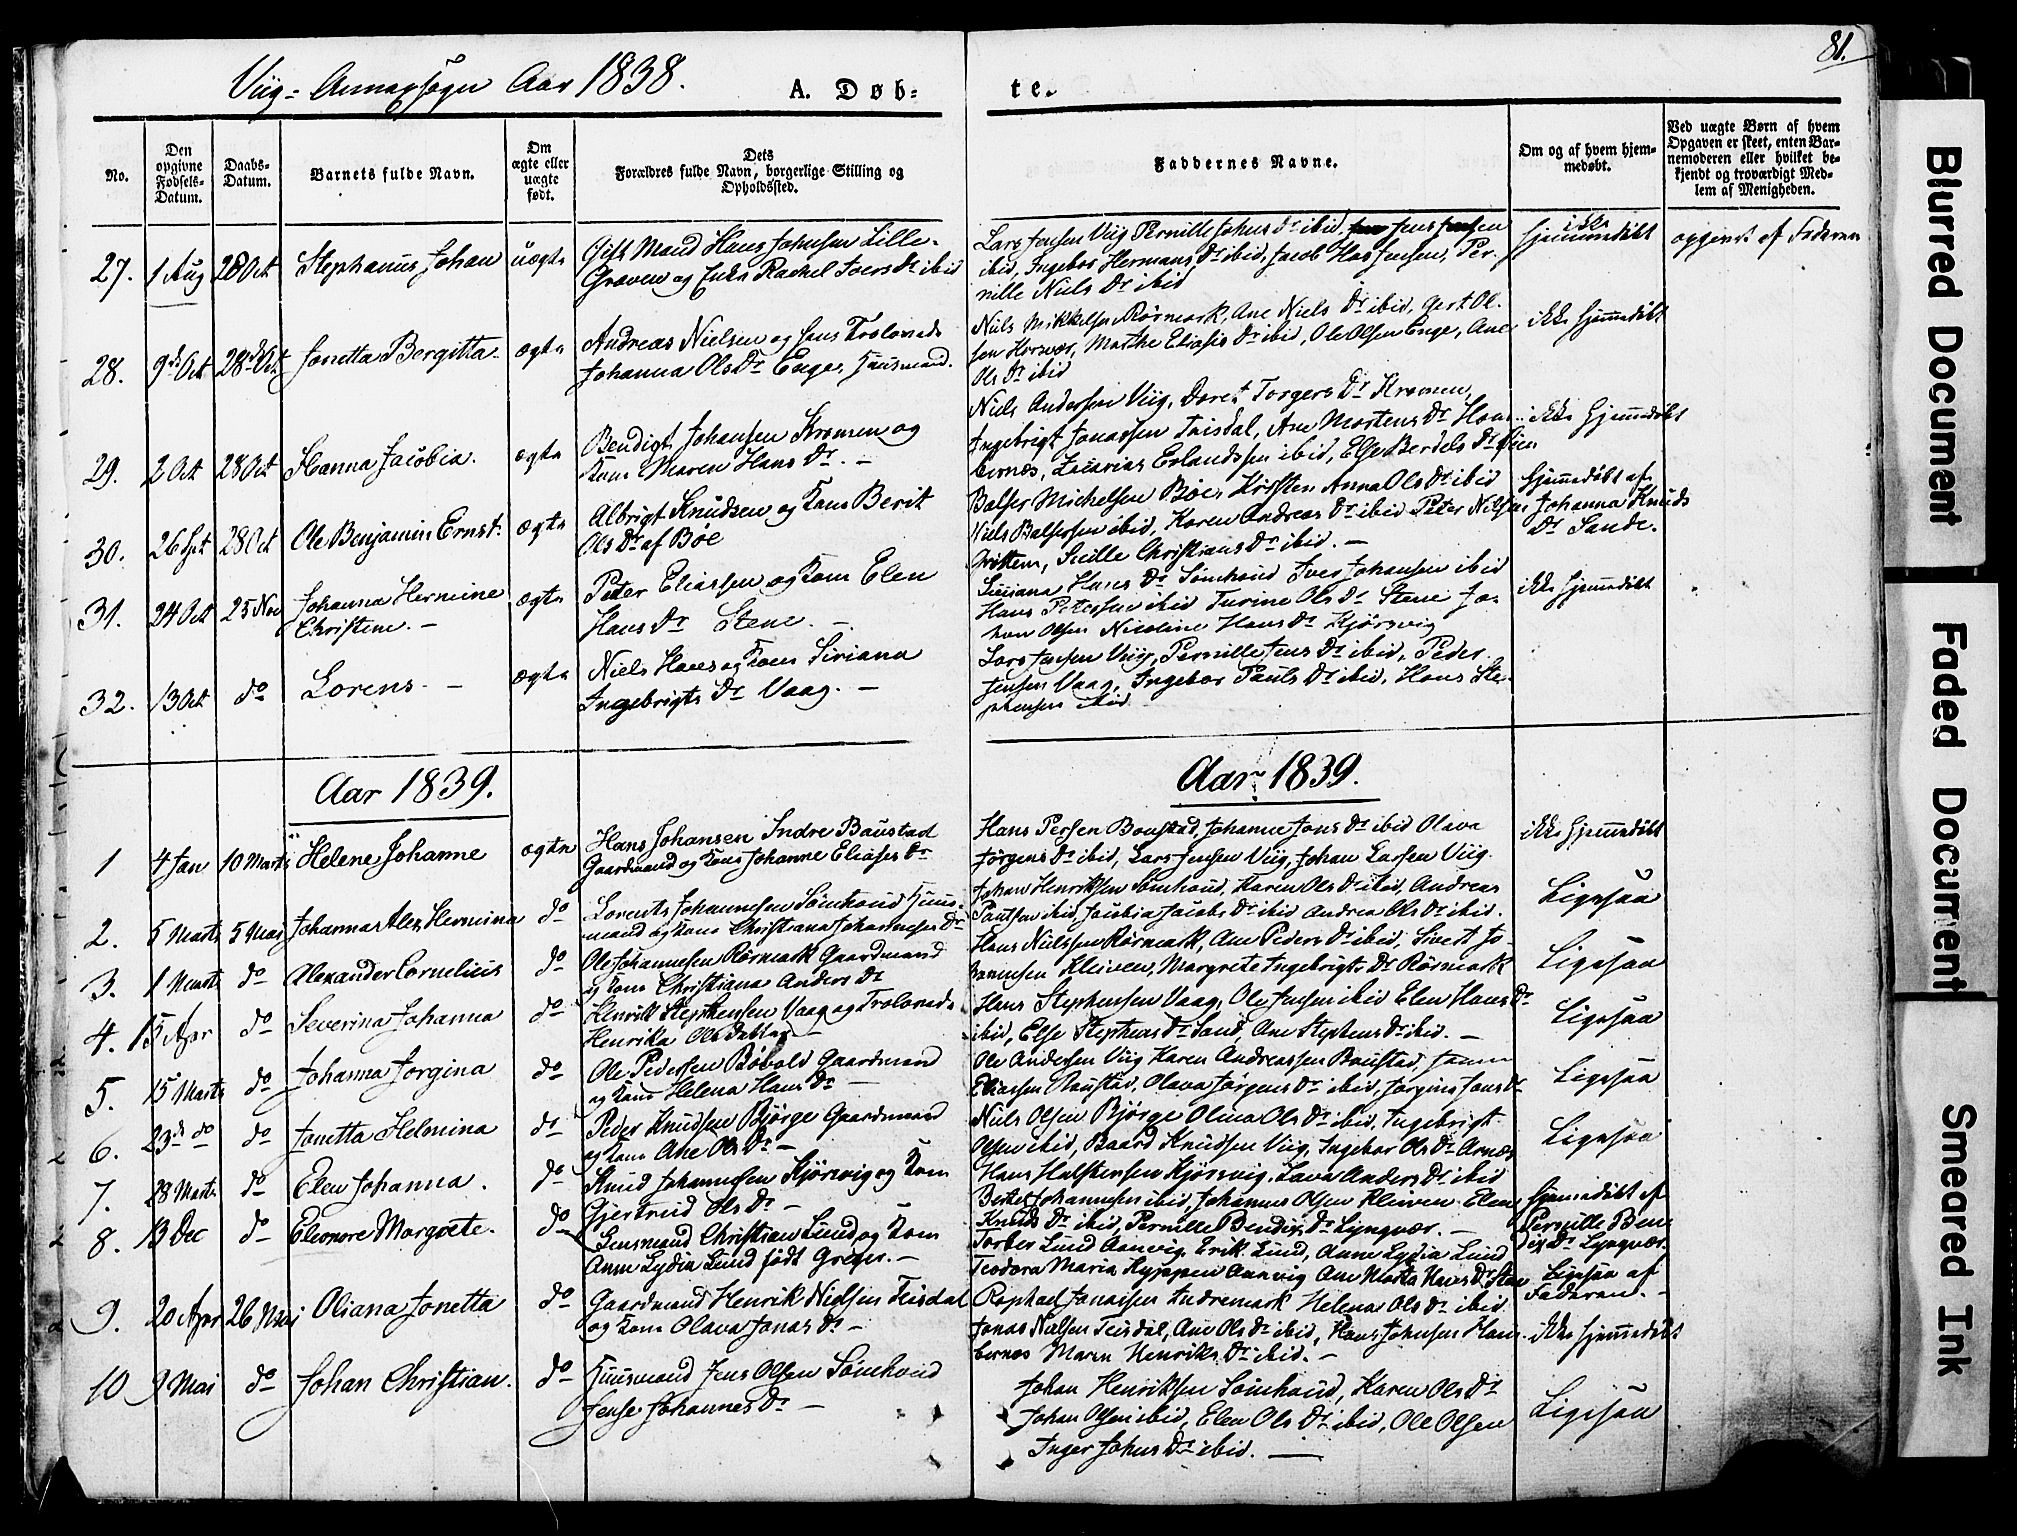 Viig - Annexsogn Aar 1838.
A. Døb-
te.
81.
No.
Den opgivne Fødsels-Datum.
Daabs-Datum.
Barnets fulde Navn.
Om ægte eller uægte født.
Dets Forældres fulde Navn, borgerlige Stilling og Opholdssted.
Faddernes Navne.
Om og af hvem hjem-medøbt.
Ved uægte Børn af hvem Opgaven er skeet, enten Bar-nemoderen eller hvilket be-kjendt og troværdigt Med-lem af Menigheden.
27. 1 Aug 28 Oct Stephanus Johan uægte
Gift Mand Hans Johnsen Lille-
Graven og Enke Rachel Iversdr ibid
Lars Jensen Viig Pernille Johns Dr ibid, Jens Jensen
ibid, Ingebor Hermans Dr ibid, Jacob Hos Jensen, Per-
nille Niels Dr ibid
ikke
hjemmedøbt
opgivet af Faderen
28. 9de Oct 28de Oct Jonetta Bergitta. ægte
Andreas Nielsen og hans Trolovede
Johanna Ols Dr Enge, Huusmand.
Niels Mikkelsen Rörmark, Ane Niels Dr ibid, Gert Ol-
sen Hornvær, Marthe Eliasis Dr ibid, Ole Olsen Enge, Ane
Ols Dr ibid
ikke hjemmedøbt
29. 2 Oct 28 Oct Hanna Jacobia. ægte
Bendigt Johansen Kromen og
Kone Maren Hans Dr. -
Niels Andersen Viig, Doret Torgers Dr Kromen,
Ingebrigt Jonassen Teisdal, Ane Mortens Dr Ham-
bernæs, Zacarias Erlandssen ibid, Else Berdels Dr
ikke hjemmedøbt
30. 26 Spt 28 Oct Ole Benjamin Ernst. ægte
Albrigt Knudsen og Kone Berit
Ols Dr af Böe
Balser Michelsen Böe, Kirsten Anna Ols Dr ibid
Niels Balsersen ibid, Karen Andreas Dr ibid Peter Nilsen
Qvittem, Sicille Christians Dr ibid. -
hjemmedøbt af
Johanna Knuds
Dr Sande.
31. 24 Oct 25 Nov Johanna Hermine
Christine. - ægte
Peter Eliassen og Kone Elen
Hans Dr Stene. -
Siriana Hans Dr Sömhoud Iver Johansen ibid
Hans Petersen ibid Turine Ols Dr Stene Jo-
han Olsen Nicoline Hans Dr Kjörsvig
ikke hjemmedøbt
32. 13 Oct do Lorens. - ægte
Niels Hans og Kone Siriana
Ingebrigts Dr Vaag. -
Lars Jensen Viig, Pernille Jens Dr ibid, Peder
Jensen Vaag, Ingebor Pauls Dr ibid, Hans Ste-
phensen ibid
Aar 1839.
Aar 1839.
1 4 Jan 10 Marts Helene Johanne ægte
Hans Johansen Indre Baustad
Gaardmand og Kone Johanne Eliases Dr
Hans Persen Boustad, Johanne Jons Dr ibid Olava
Jörgens Dr ibid, Lars Jensen Viig, Johan Larsen Viig.
ikke hjemmedøbt
2. 5 Marts 5 Mai Johanna Alex Hermina do
Lorents Johannesen Sömhoud Huus-
mand og Kone Christiana Johannesen Dr
Johan Henriksen Sömhoud, Karen Ols Dr ibid, Andreas
Paulsen ibid, Jacobia Jacobs Dr ibid Andrea Ols Dr ibid.
Ligesaa
3. 1 Marts do Alexander Cornelius do
Ole Johannesen Rörmark Gaardmand
og Kone Christiana Anders Dr
Hans Nielssen Rörmark, Ane Peders Dr ibid, Sivert Jo-
hannesen Kleiven, Margrete Ingebrigts Dr Rörmark
Ligesaa
4. 15 Apr do Severina Johanna do
Henrik Stephensen Vaag og Trolovede
Henrika Ols Datter -
Hans Stephensen Vaag, Ole Jensen ibid Elen Hans Dr
ibid, Else Stephens Dr Sand, Ane Stephens Dr ibid. -
Ligesaa
5. 15 Marts do Johanna Jorgina do
Ole Pedersen Böbold Gaardmand
og Kone Helena Hans Dr -
Ole Andersen Viig Karen Andreassen Boustad,
Eliassen Boustad, Olava Jörgens Dr ibid, Jorgine Jons Dr
Ligesaa
6. 23de do do Jonetta Helmina do
Peder Knudsen Björge Gaardmand
og Kone Ane Ols Dr -
Niels Olsen Björge Olina Ols Dr ibid, Ingebrigt
Olsen ibid, Baard Knudsen Viig, Ingebor Ols Dr Arnæs
Ligesaa
7. 28 Marts do Elen Johanna. do
Knud Johannesen Kjörsvig og Kone
Gjertrud Ols Dr -
Hans Halstensen Kjörsvig, Lava Anders Dr ibid
Berthet Johannesen ibid, Johannes Olsen Kleiven Elen
Knuds Dr ibid, Pernille Bendix Dr Lyngvær. -
hjemmedøbt af
Pernille Ben-
dix Dr Lyngvær.
8. 13 Dec do Eleonore Margrete. do
Lensmand Christian Lund og Kone
Anne Lydia Lund født Greger. -
Torber Lund Aanvig, Erik Lund, Anne Lydia Lund
Teodora Maria Hyppen Aanvig Ane Marta Hans Dr Stene
Ligesaa af
Faderen. -
9. 20 Apr 26 Mai Oliana Jonetta do
Gaardmand Henrik Nielsen Teisdal
og Kone Olava Jonas Dr -
Raphael Jonassen Indremark Helena Ols Dr ibid
Jonas Nielsen Teisdal, Ane Ols Dr ibid, Hans Johnsen Ham-
bernæs Maren Henriks Dr ibid. -
ikke hjemmedøbt
10 9 Mai do Johan Christian. do
Huusmand Jens Olsen Sömhoud
Jense Johannes Dr -
Johan Henriksen Sömhoud, Karen Ols Dr
Johan Olsen ibid, Elen Ols Dr ibid, Ole Olsen
Inger Johns Dr ibid. -
Ligesaa
Blurred Document
Faded Document
Smeared Ink